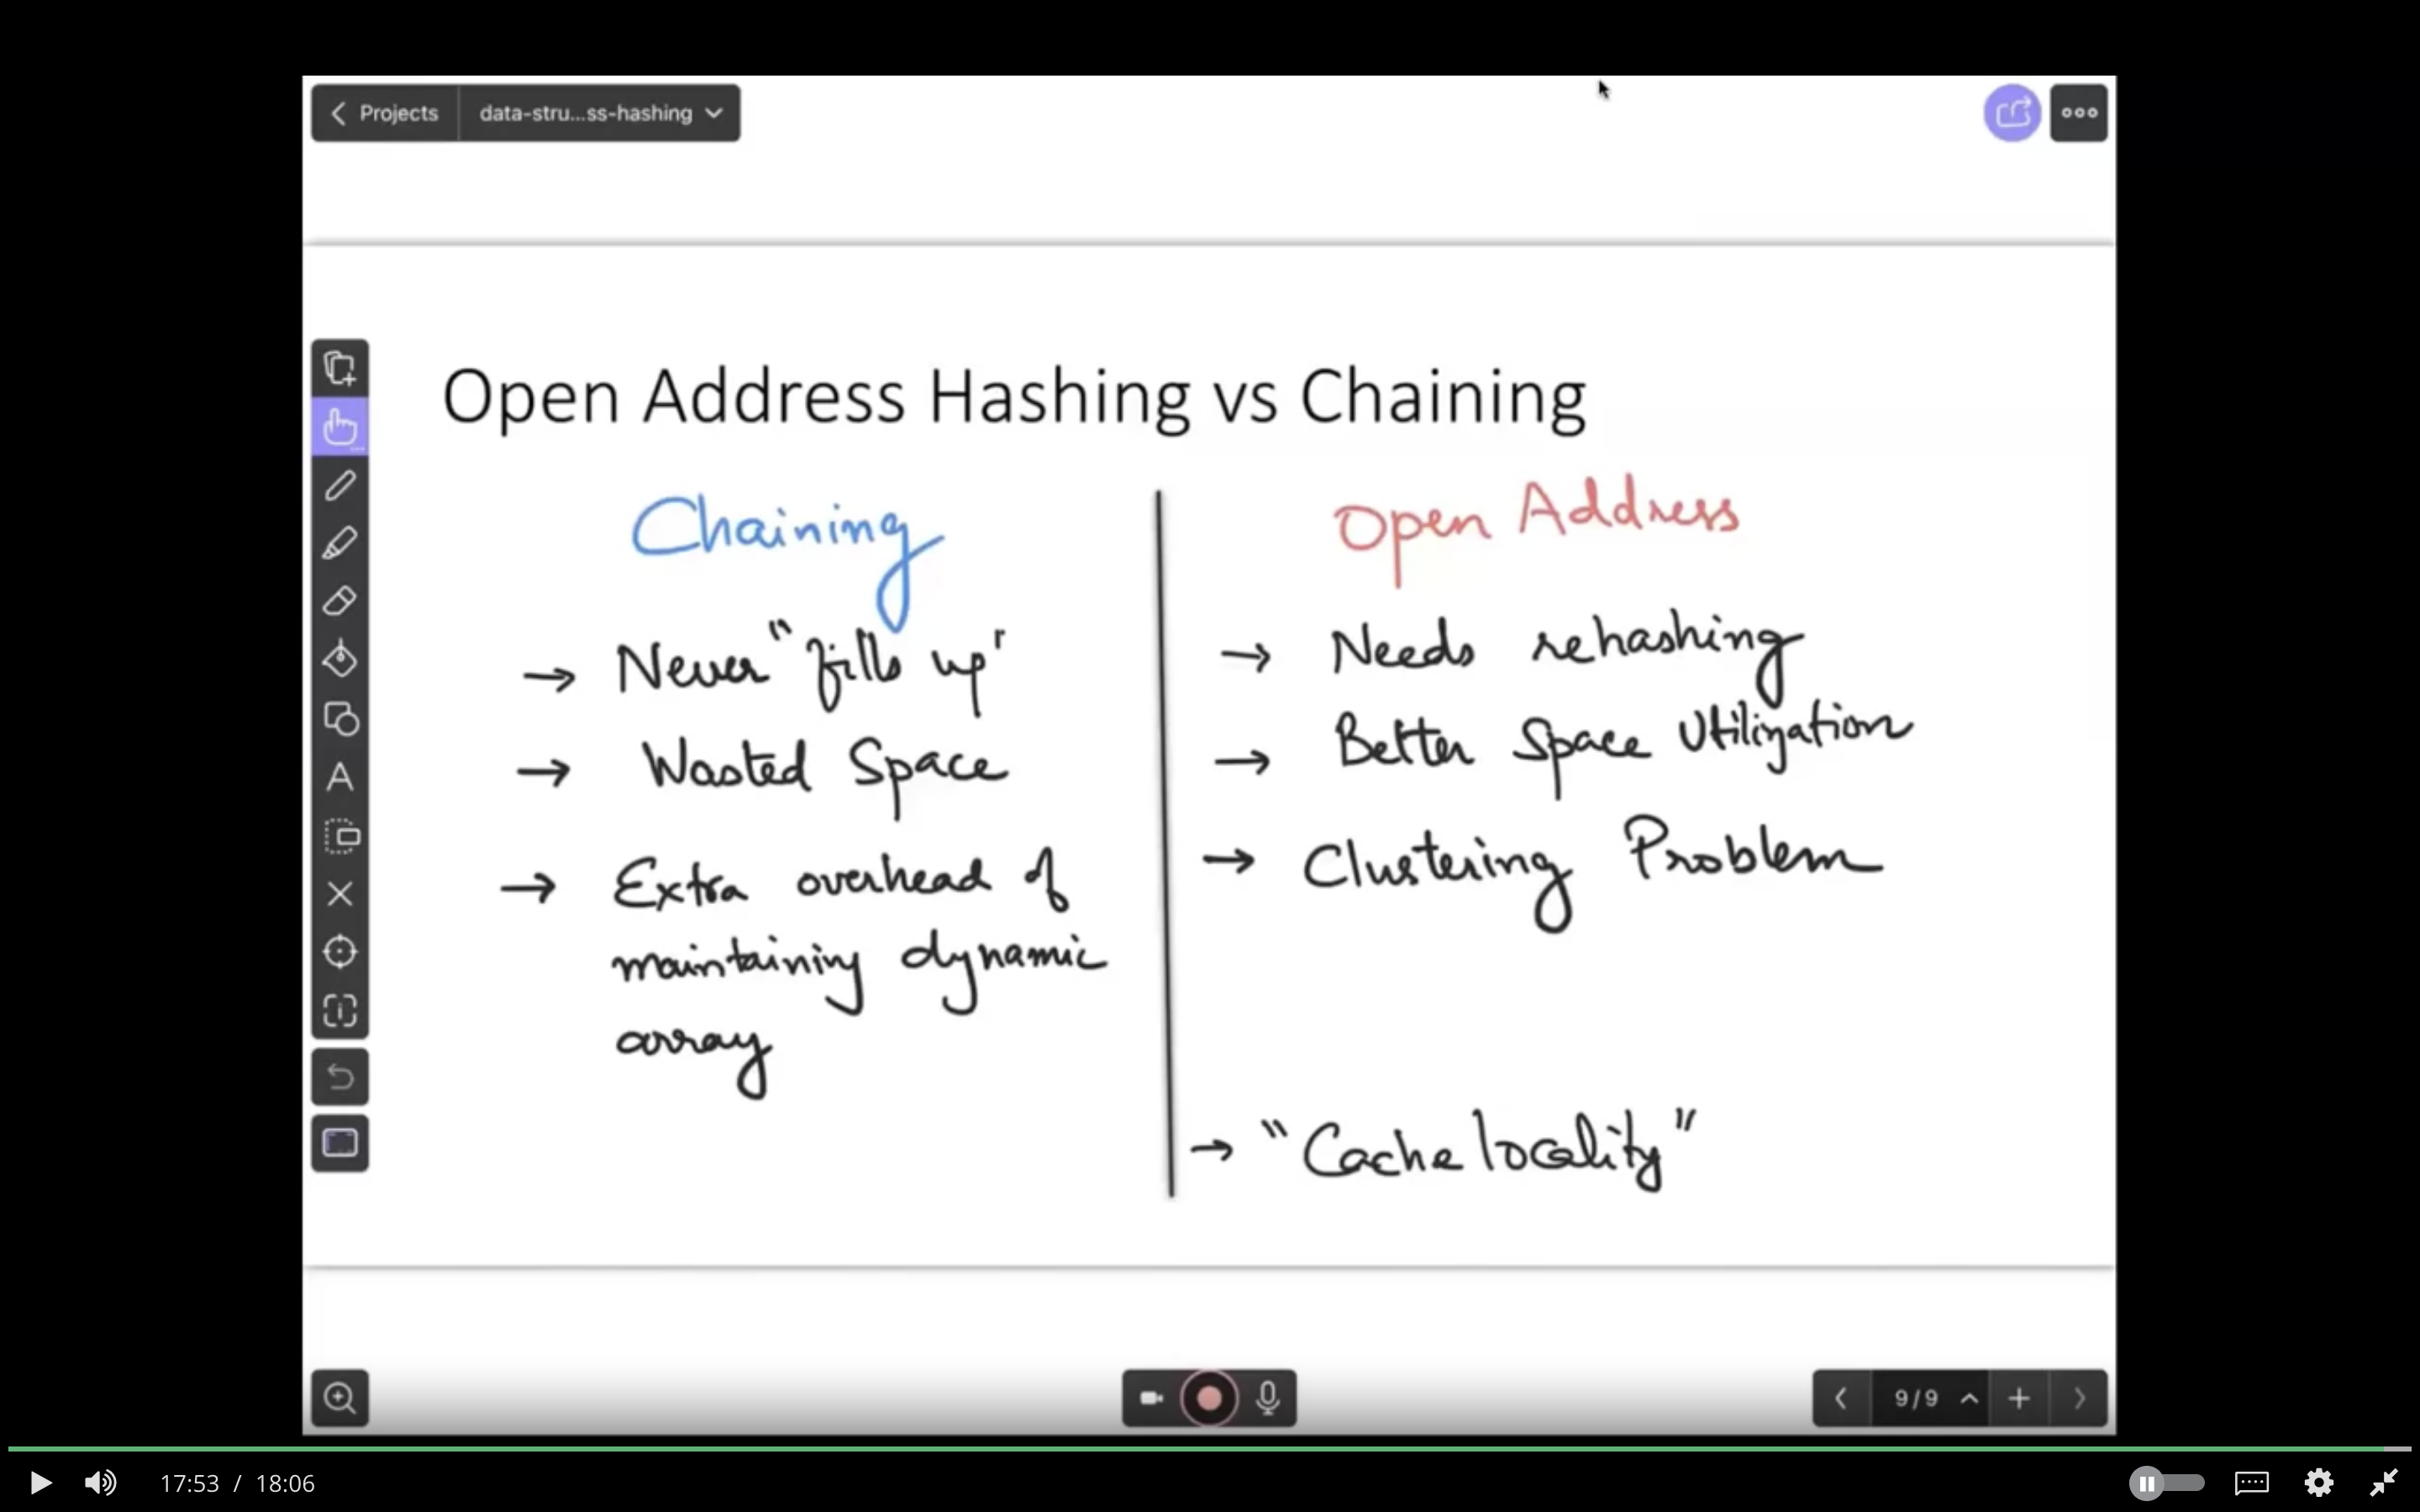 Projects
data-stru...ss-hashing
Open Address Hashing vs Chaining
Chaining
→ Never "fills up"
→ Wasted Space
→ Extra overhead of
maintaining dynamic
array
Open Address
→ Needs rehashing
→ Better Space Utilization
→ Clustering Problem
→ "Cache locality"
9/9
17:53 / 18:06